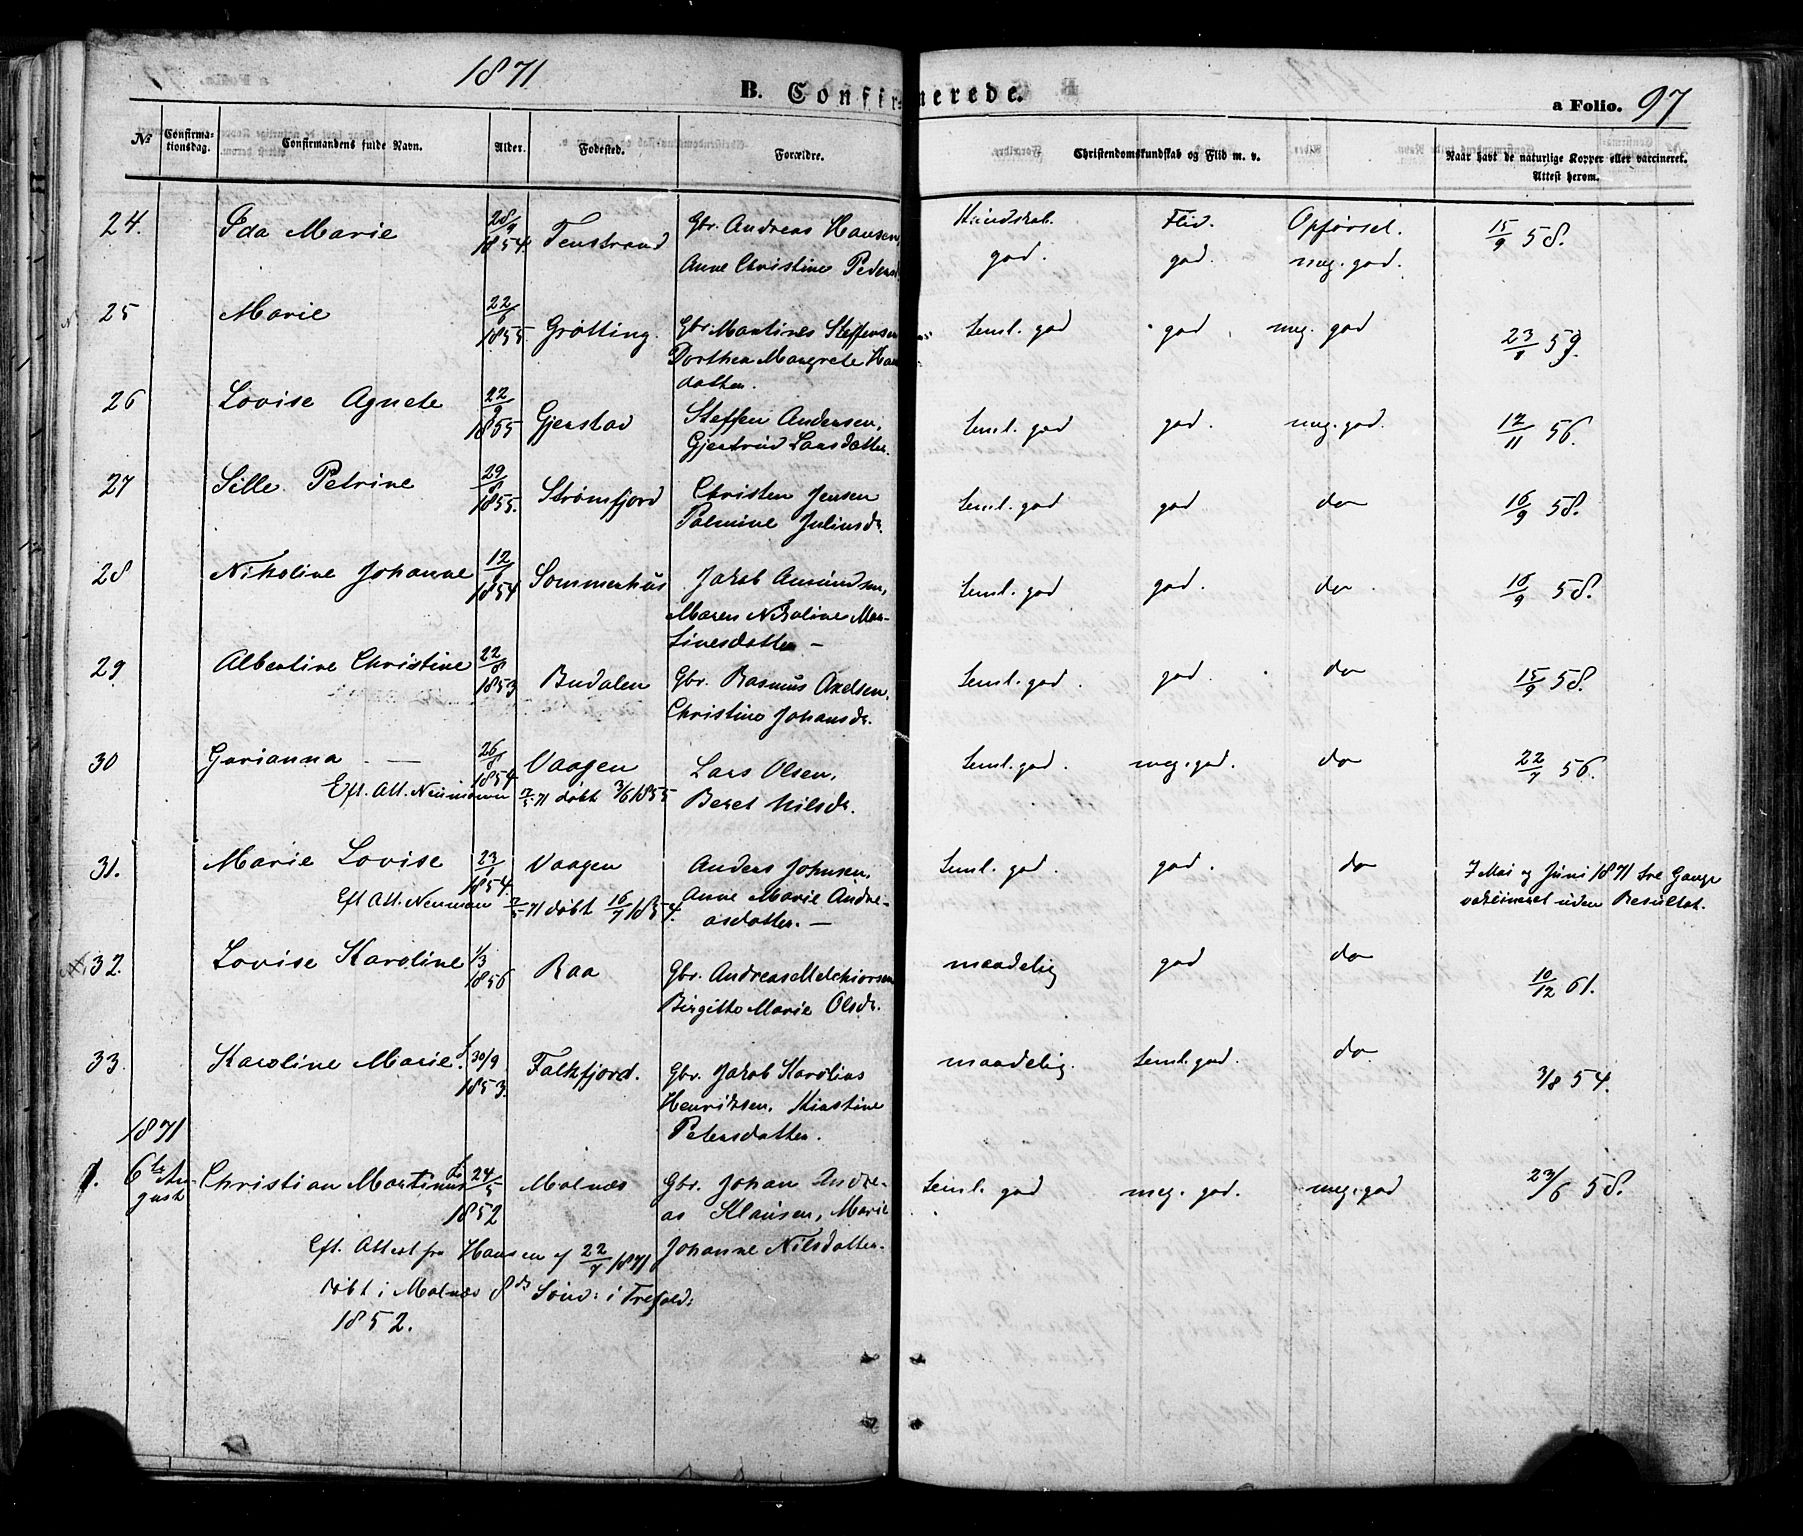 1871
B. Confirmerede.
a Folio. 97
No
Confirmationsdag.
Confirmandens fulde Navn.
Alder.
Fødested.
Forældre.
Christendomskundskab og Flid m. v.
Naar havt de naturlige Kopper eller vaccineret.
Attest herom.
24. Ida Marie 28/9 1854. Tenstrand Gbr. Andreas Hansen, Kundskab. Flid. Opførsel. 15/9 58.
Anne Christine Pedersd god. god. meg. god.
25 Marie 22/6 1855. Grøtting. Gbr. Martines Steffensen Teml. god god meg. god 23/8 59.
Dorthea Margrete Han
datter.
26 Lovise Agnete 22/9 1855 Gjerstad Steffen Andersen, Teml. god god. meg. god. 12/11 56.
Gjertrud Larsdatter.
27 Sille Petrine 29/8 1855. Strømfjord Christen Jensen Teml. god god do 16/9 58.
Palmine Juliusdr.
28 Nikoline Johanne 12/9 1854 Sommerhus Jakob Amundsen, Teml. god god. do. 16/9 58.
Maren Nikoline Mar-
tinesdatter —
29 Albertine Christine 22/8 1853 Budalen Gbr. Rasmus Axelsen, Teml. god. god. do 15/9 58.
Christine Johansdr.
30 Gurianna — 26/8 1854. Vaagen Lars Olsen, Teml. god. meg. god. do 22/7 56.
Eft. Att. Neumann 7/5 71 døbt 3/6 1855 Beret Nilsdr.
31. Marie Lovise 23/1 1854. Vaagen Anders Johnsen, Teml. god god. do I Mai og Juni 1871 tre Gange
Eft Att. Neuman 7/5 71 døbt 16/7 1854. Anne Marie Andre- vakcineret uden Resultat.
asdatter. —
32. Lovise Karoline 1/3 1856 Raa Gbr. Andreas Melchiorsen maadelig god do 10/12 61.
Birgitte Marie Olsdr.
33. Karoline Marie. f. 30/9 1853. Falkfjord. Gbr. Jakob Karolius maadelig. Teml. god. do 3/8 54.
Henriksen, Kirstine
Petersdatter.
1871
1. 6te August Christian Martinus f. 24/5 1852 Malnæs Gbr. Johan Andre- Teml. god meg. god. meg. god 23/6 58.
as Klausen, Marie
Eft. Attest fra Hansen af 22/7 1871 Johanne Nilsdatter.
døbt i Malnæs 8de Sønd: i Trefold:
1852.